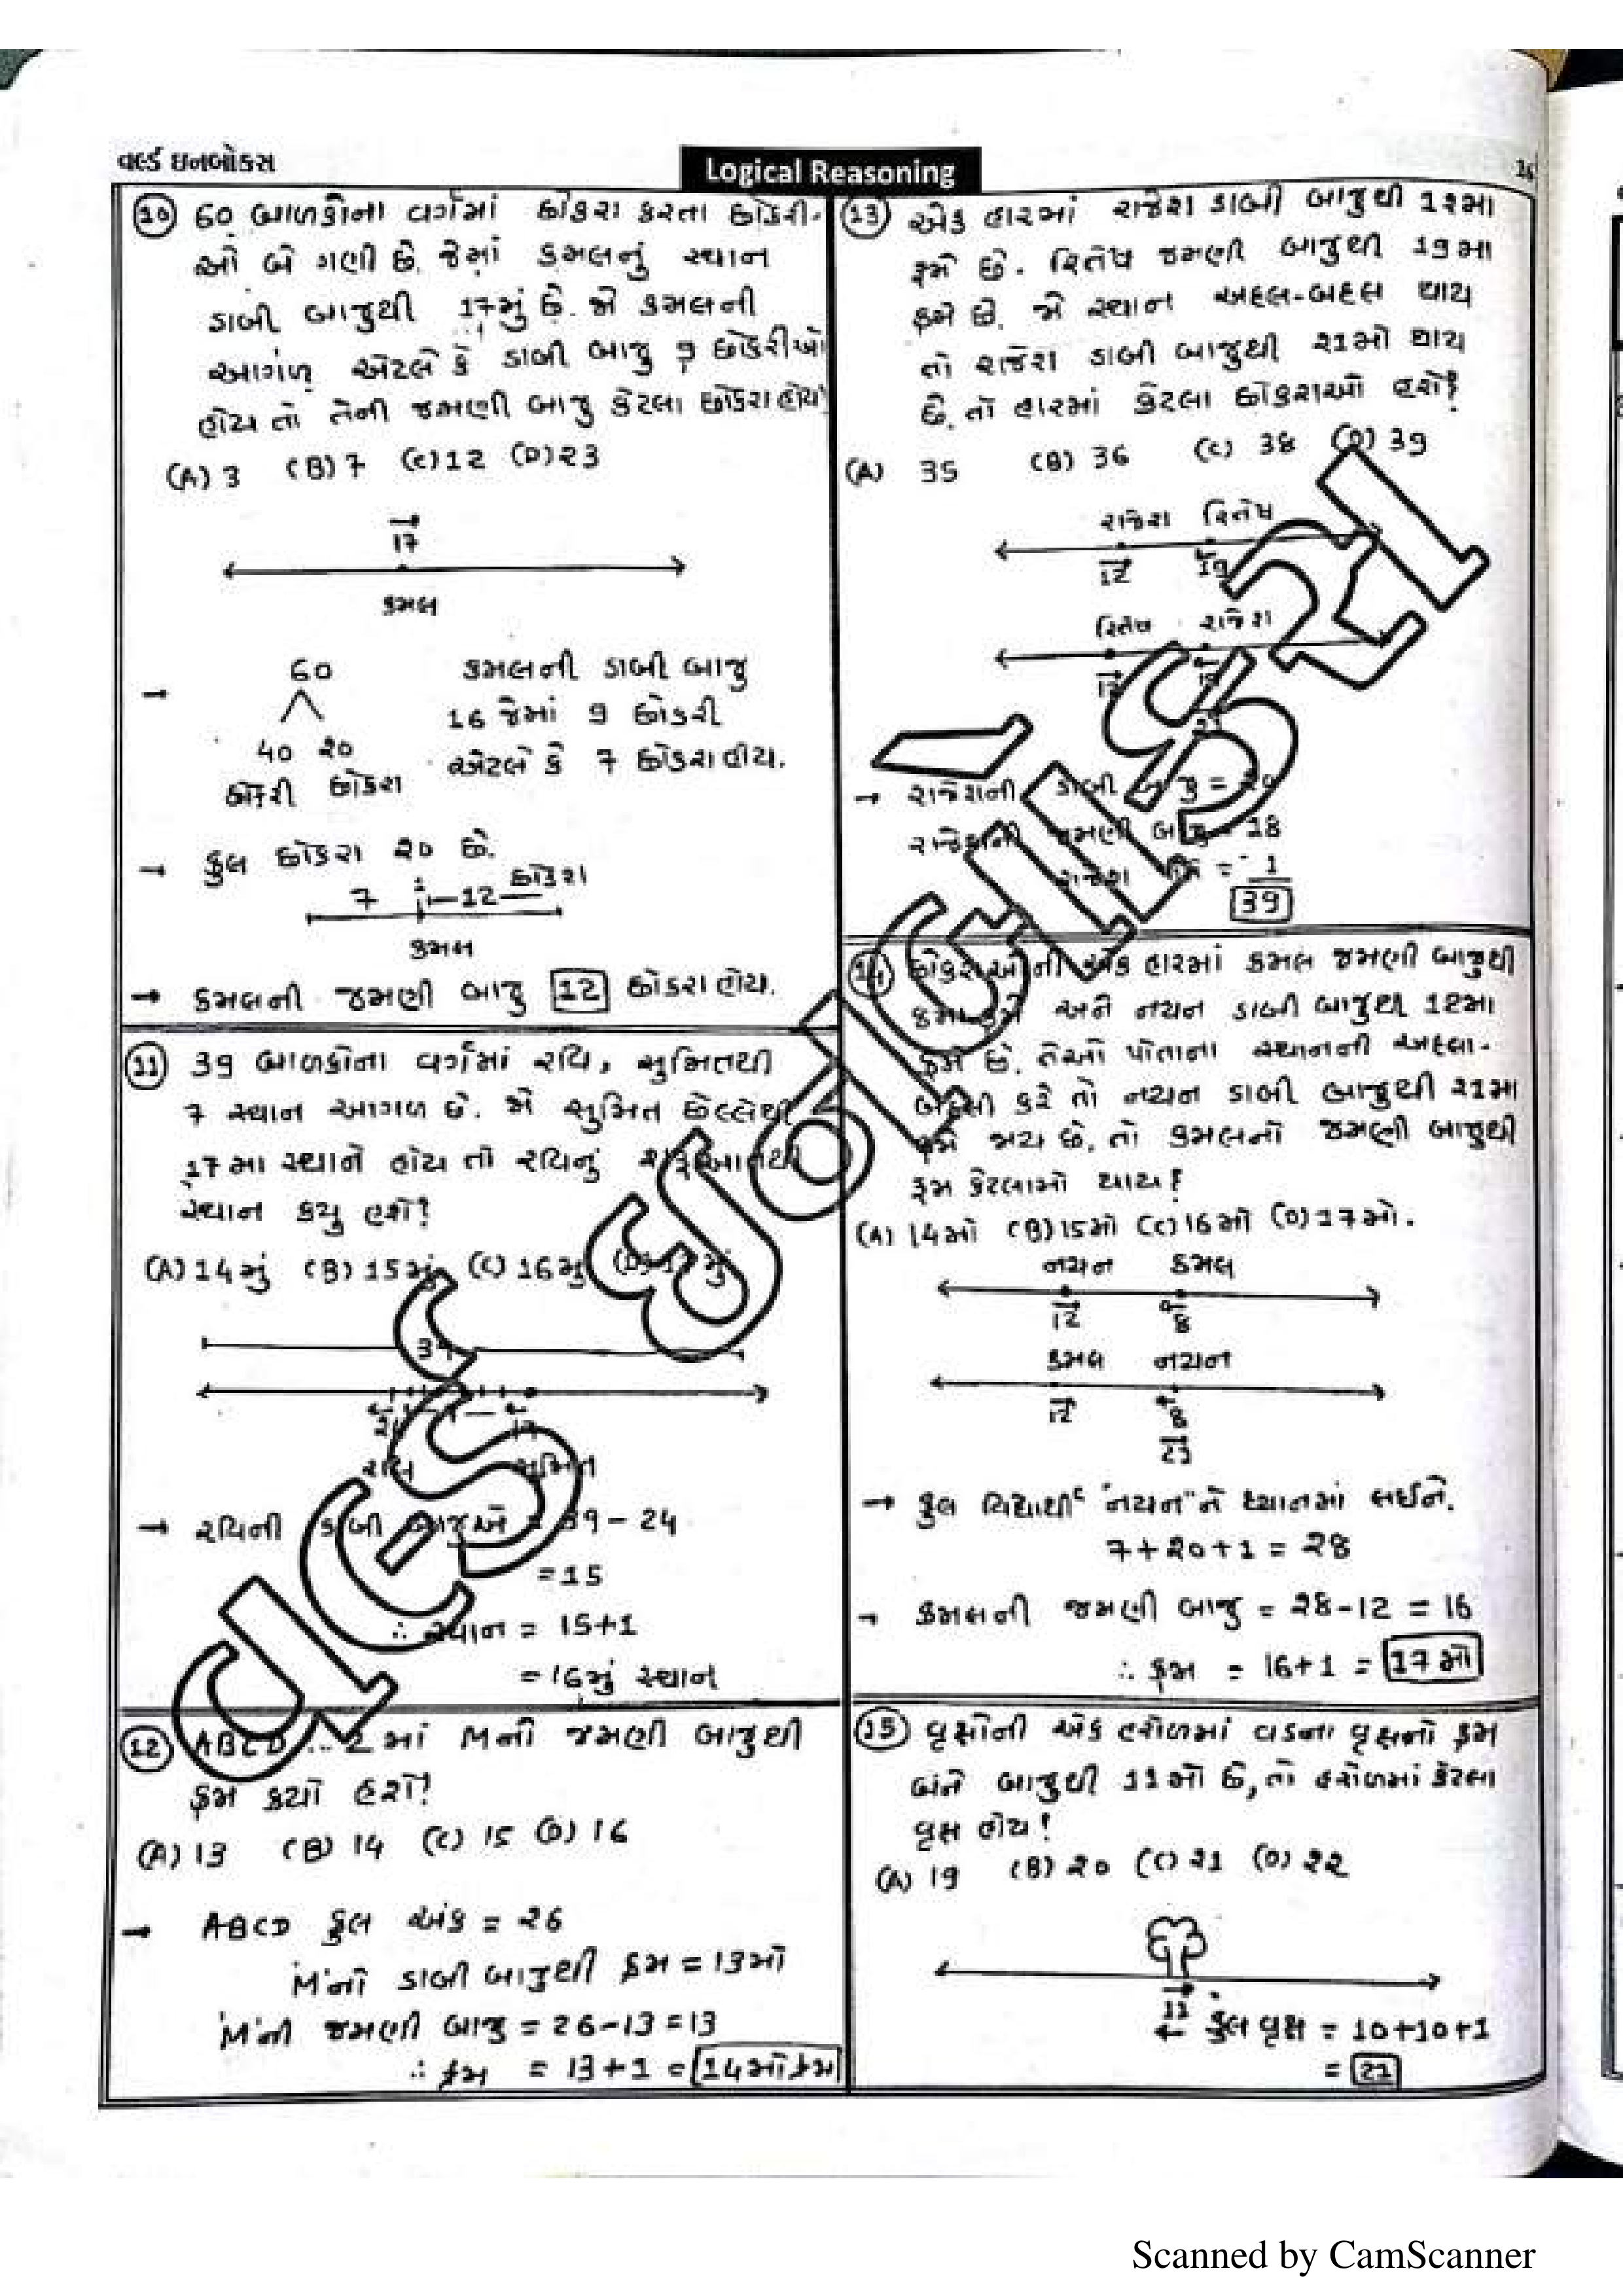 વર્લ્ડ ઇનબોક્સ
Logical Reasoning
(10) 60 બાળકોના વર્ગમાં છોકરા કરતા છોકરી-
ઓ બે ગણી છે. જેમાં કમલનું સ્થાન
ડાબી બાજુથી 17મું છે. જો કમલની
આગળ એટલે કે ડાબી બાજુ 9 છોકરીઓ
હોય તો તેની જમણી બાજુ કેટલા છોકરા હોય?
(A) 3 (B) 7 (C) 12 (D) 23
17
કમલ
→ 60
40 20
છોકરી છોકરા
કમલની ડાબી બાજુ
16 જેમાં 9 છોકરી
એટલે કે 7 છોકરા હોય.
→ કુલ છોકરા 20 છે.
7 12 છોકરા
કમલ
→ કમલની જમણી બાજુ 12 છોકરા હોય.
(11) 39 બાળકોના વર્ગમાં રવિ, સુમિતથી
7 સ્થાન આગળ છે. જો સુમિત છેલ્લેથી
17મા સ્થાને હોય તો રવિનું શરૂઆતથી
સ્થાન કયુ હશે?
(A) 14મું (B) 15મું (C) 16મું (D) 17મું
39
24 17
રવિ સુમિત
→ રવિની ડાબી બાજુએ = 39 - 24
= 15
∴ સ્થાન = 15+1
= 16મું સ્થાન
(12) ABCD...Z માં Mની જમણી બાજુથી
ક્રમ કયો હશે?
(A) 13 (B) 14 (C) 15 (D) 16
→ ABCD કુલ અંક = 26
'M'નો ડાબી બાજુથી ક્રમ = 13મો
'M'ની જમણી બાજુ = 26-13 = 13
∴ ક્રમ = 13+1 = 14મો ક્રમ
(13) એક હારમાં રાજેશ ડાબી બાજુથી 12મા
ક્રમે છે. રિતેષ જમણી બાજુથી 19મા
ક્રમે છે. જો સ્થાન અદલ-બદલ થાય
તો રાજેશ ડાબી બાજુથી 21મો થાય
છે, તો હારમાં કેટલા છોકરાઓ હશે?
(A) 35 (B) 36 (C) 38 (D) 39
રાજેશ રિતેષ
12 19
રિતેષ રાજેશ
12 19
21
→ રાજેશની ડાબી બાજુ = 20
રાજેશની જમણી બાજુ = 18
રાજેશ = 1
39
(14) છોકરાઓની એક હારમાં કમલ જમણી બાજુથી
8મા ક્રમે અને નયન ડાબી બાજુથી 12મા
ક્રમે છે. તેઓ પોતાના સ્થાનની અદલા-
બદલી કરે તો નયન ડાબી બાજુથી 21મા
ક્રમે જાય છે, તો કમલનો જમણી બાજુથી
ક્રમ કેટલામો થાય?
(A) 14મો (B) 15મો (C) 16મો (D) 17મો.
નયન કમલ
12 8
કમલ નયન
12 8
21
→ કુલ વિદ્યાર્થી "નયન"ને ધ્યાનમાં લઈને.
7+20+1 = 28
→ કમલની જમણી બાજુ = 28-12 = 16
∴ ક્રમ = 16+1 = 17મો
(15) વૃક્ષોની એક હરોળમાં વડના વૃક્ષનો ક્રમ
બંને બાજુથી 11મો છે, તો હરોળમાં કેટલા
વૃક્ષ હોય?
(A) 19 (B) 20 (C) 21 (D) 22
11
કુલ વૃક્ષ = 10+10+1
= 21
Scanned by CamScanner